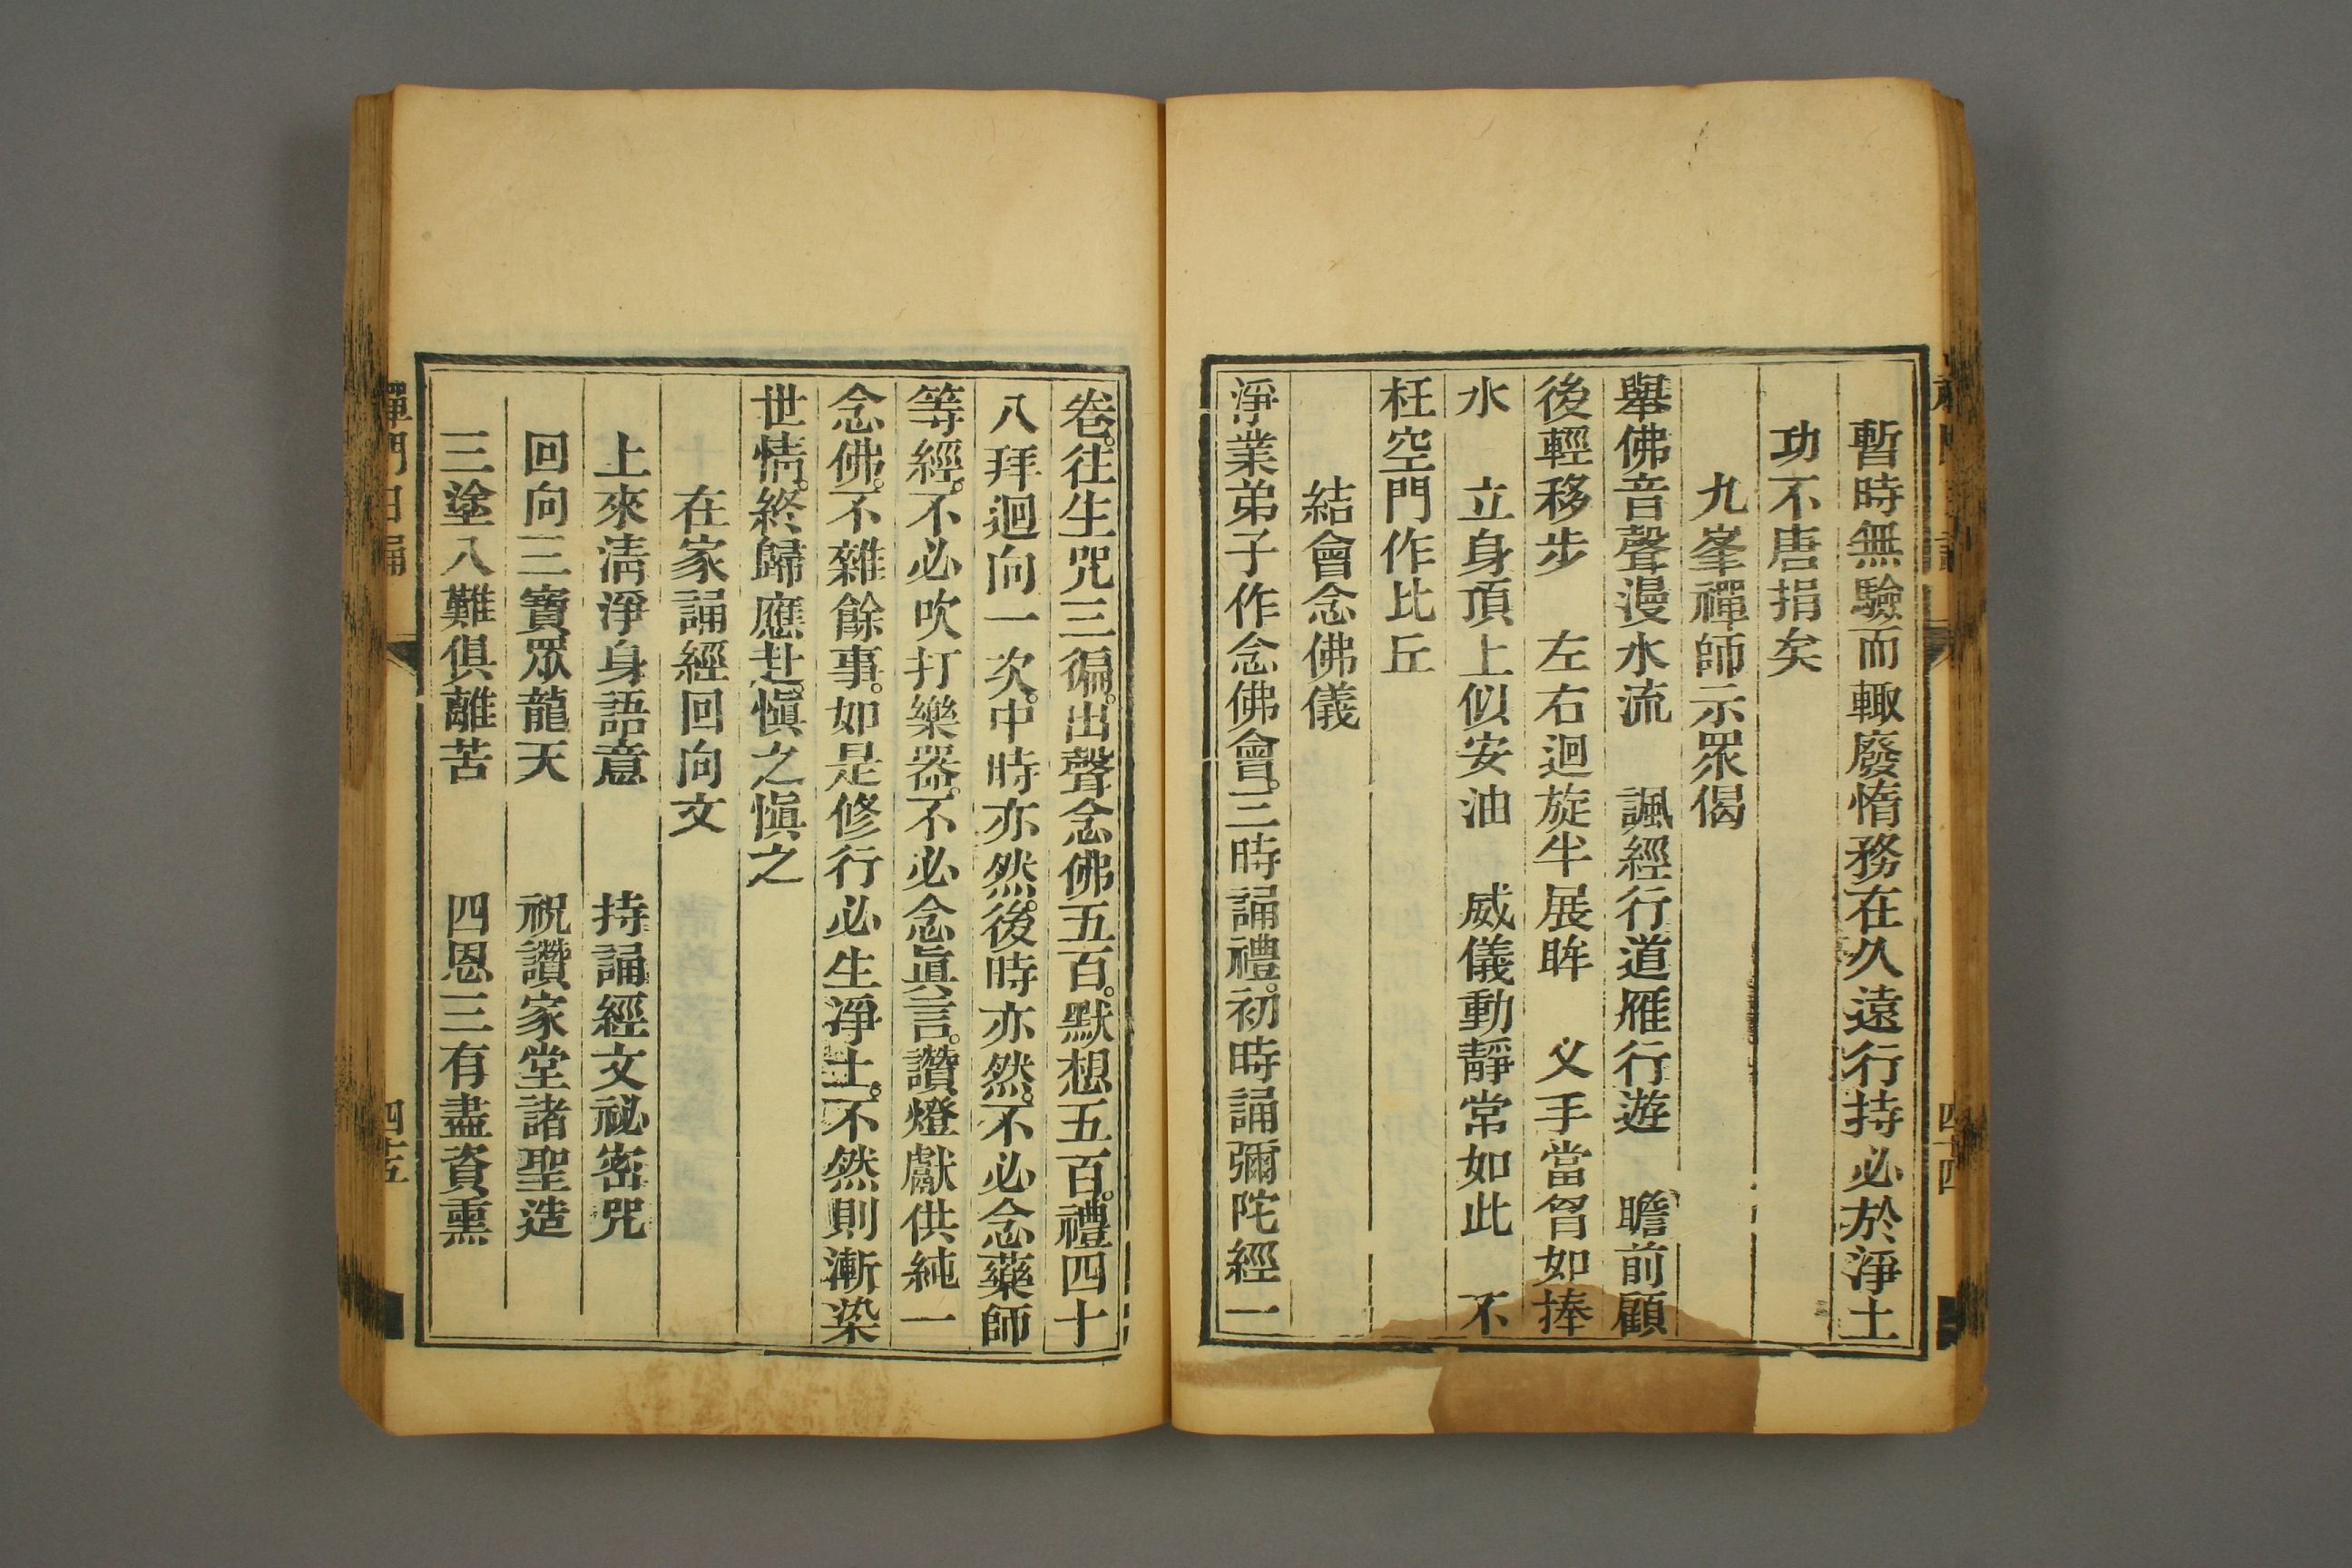 暫時無驗而輙廢惰務在久遠行持必於淨土
功不唐捐矣
九峯禪師示眾偈
舉佛音聲漫水流　諷經行道雁行遊　瞻前顧
後輕移步　左右迴旋半展眸　义手當胷如捧
水　立身頂上似安油　威儀動靜常如此　不
枉空門作比丘
結會念佛儀
淨業弟子作念佛會。三時誦禮。初時誦彌陀經一
卷。往生咒三徧。出聲念佛五百。默想五百。禮四十
八拜迴向一次。中時亦然。後時亦然。不必念藥師
等經。不必吹打樂器。不必念眞言。讚燈獻供純一
念佛。不雜餘事。如是修行必生淨土。不然則漸染
世情。終歸應赴。愼之愼之
在家誦經回向文
上來淸淨身語意　持誦經文祕密咒
回向三寶眾龍天　祝讚家堂諸聖造
三塗八難俱離苦　四恩三有盡資熏
禪門日誦
四五